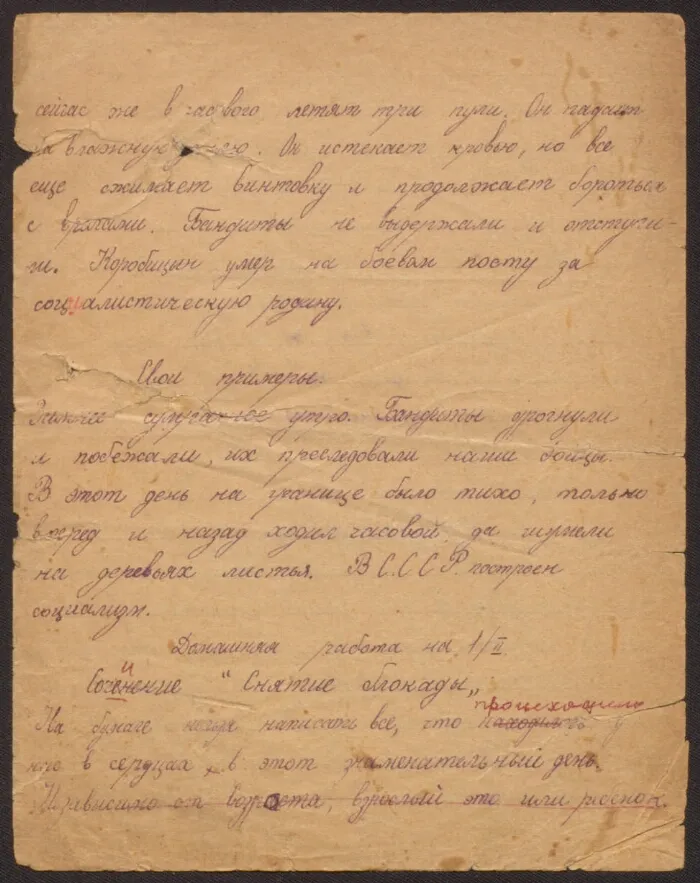 сейчас же в часового летят три пули. Он падает
на влажную землю. Он истекает кровью, но все
еще сжимает винтовку и продолжает бороться
с врагами. Бандиты не выдержали и отступи-
ли. Коробицын умер на боевом посту за
социалистическую родину.
Свои примеры.
Зимнее утро. Бандиты дрогнули
и побежали, их преследовали наши бойцы.
В этот день на границе было тихо, только
вперед и назад ходил часовой, да шумели
на деревьях листья. В С.С.С.Р. построен
социализм.
Домашняя работа на 1/II
Сочинение "Снятие блокады"
На бумаге нельзя написать все, что происходило
в сердцах в этот знаменательный день.
от возроста, взрослый это или ребенок.